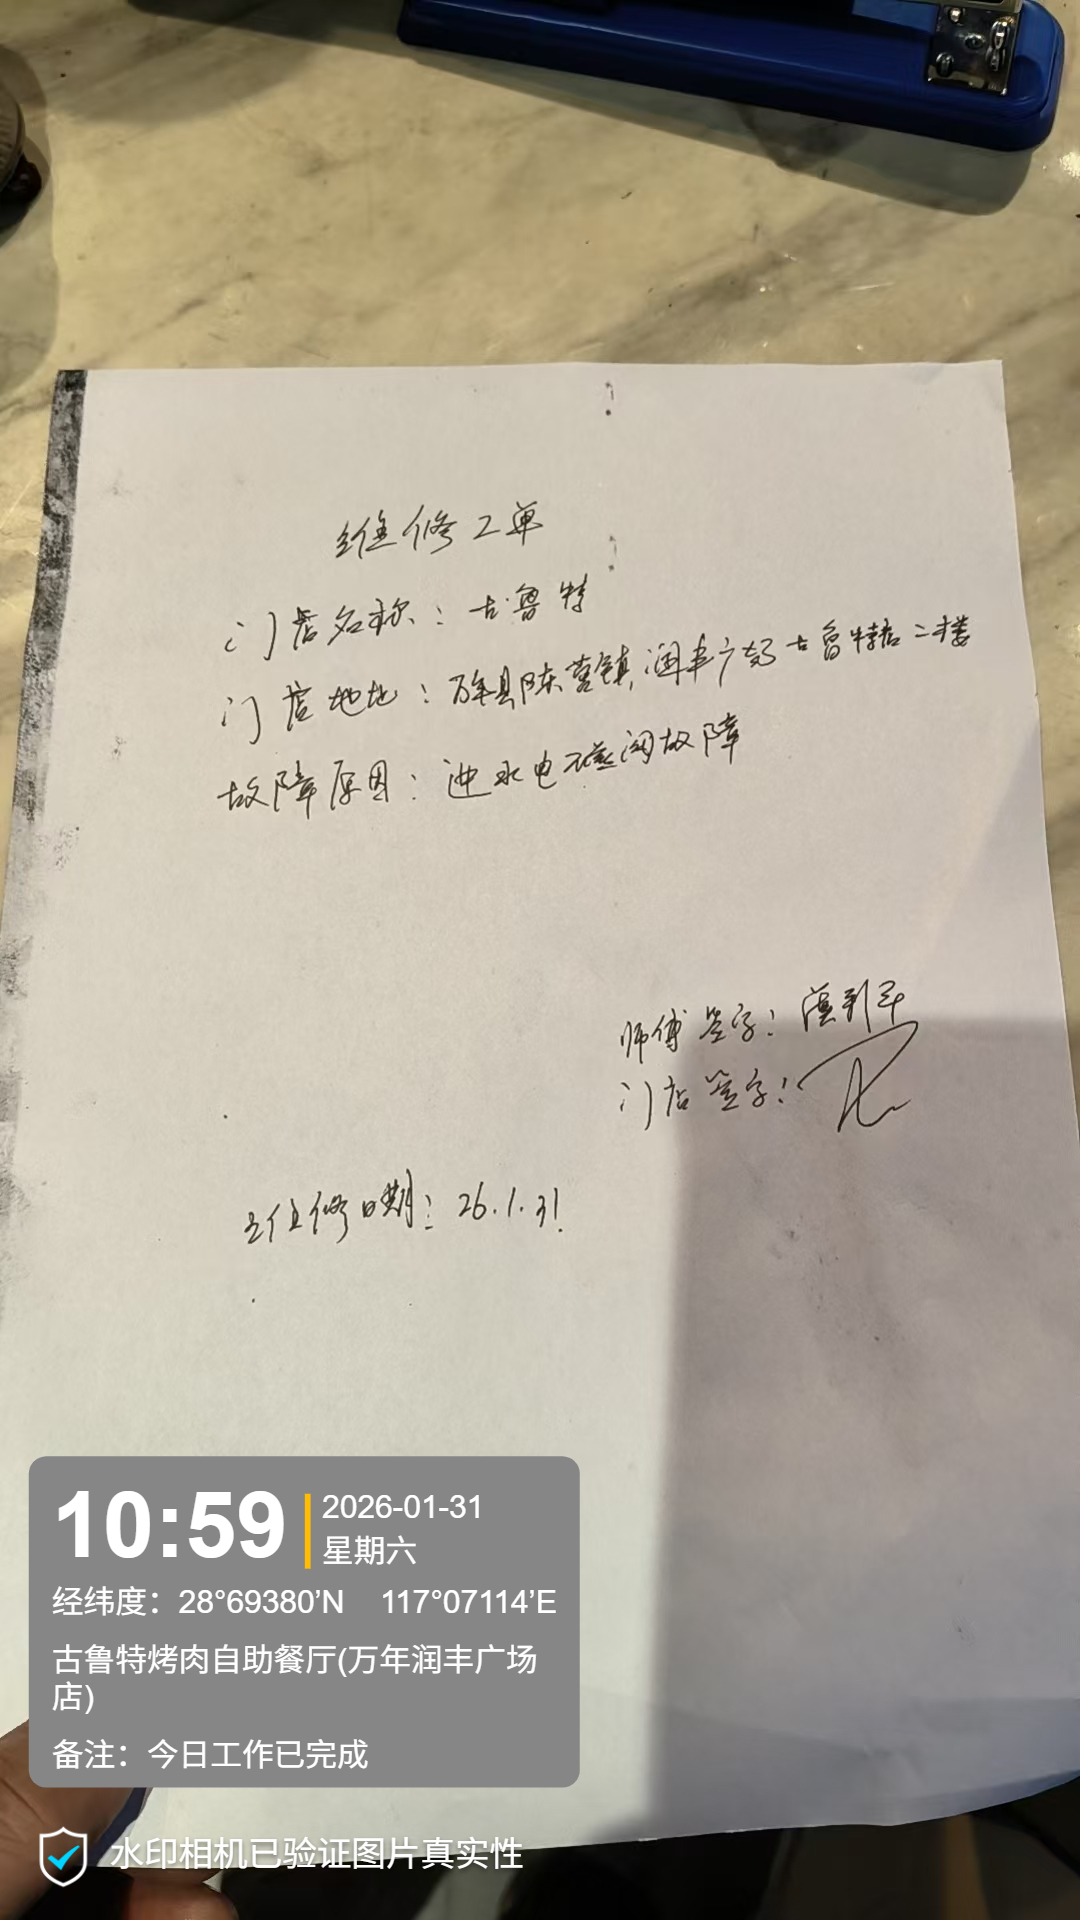 维修工单
门店名称：古鲁特
门店地址：万年县陈营镇润丰广场古鲁特店二楼
故障原因：进水电磁阀故障
师傅签字：
门店签字：
维修日期：26.1.31
10:59
2026-01-31
星期六
经纬度：28°69380’N 117°07114’E
古鲁特烤肉自助餐厅(万年润丰广场
店)
备注：今日工作已完成
水印相机已验证图片真实性